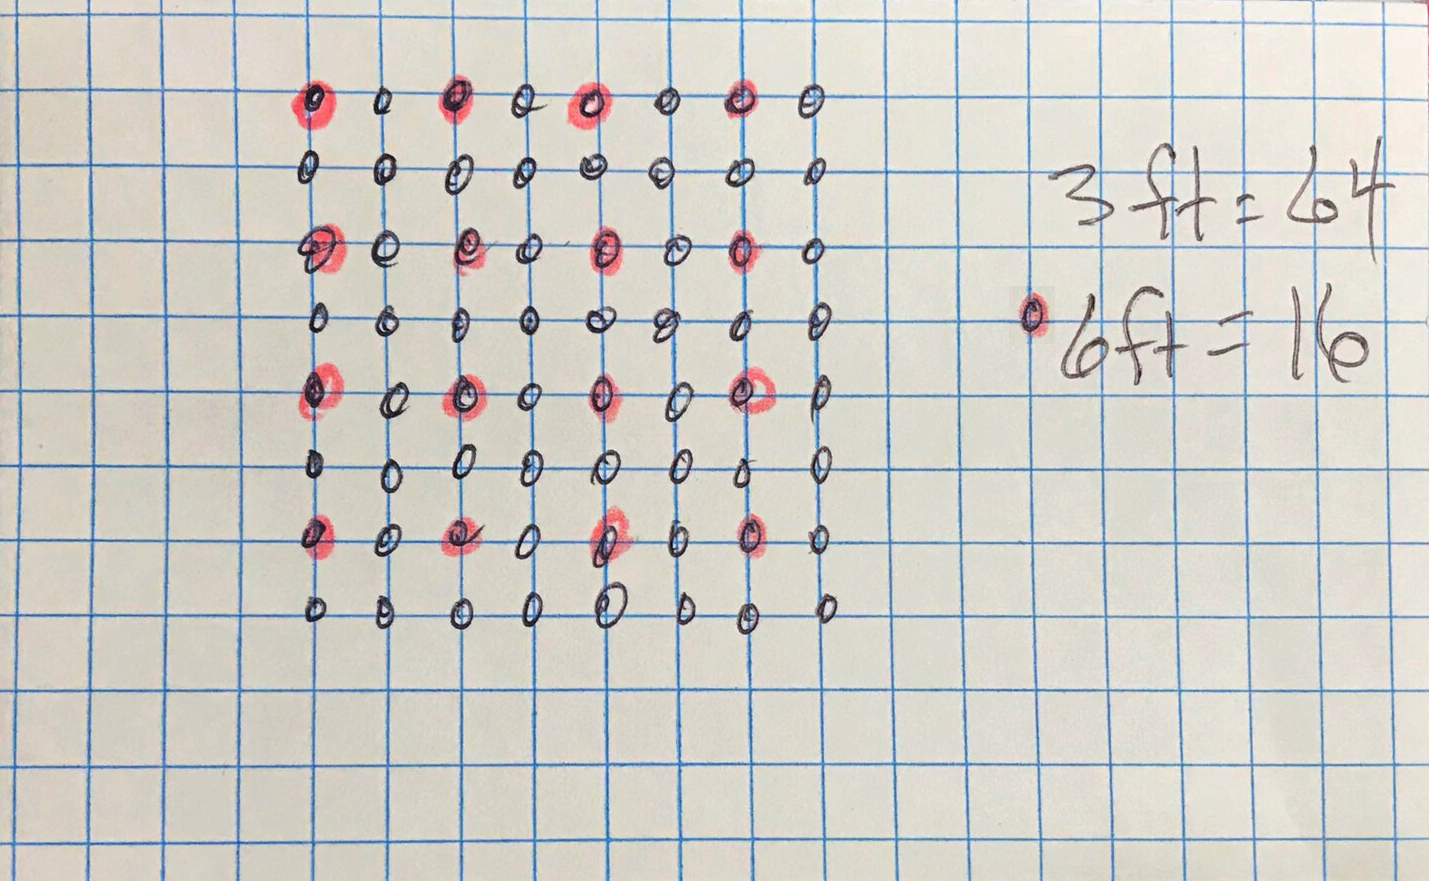 3 ft = 64
6ft = 16